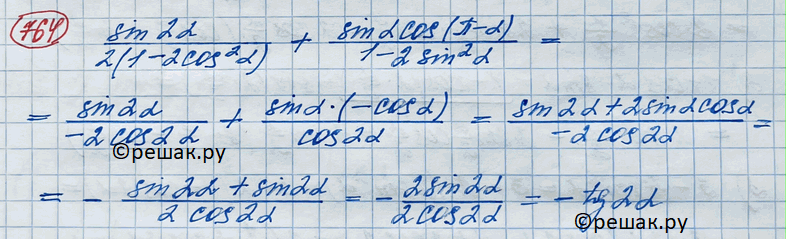 764 sin 2α / 2(1-2cos²α) + sinα cos(π-α) / 1-2 sin²α =
= sin2α / -2cos2α + sinα·(-cosα) / cos2α = sin2α+2sinαcosα / -2cos2α =
©решак.ру
= - sin2α + sin2α / 2cos2α = - 2sin2α / 2cos2α = -tg2α
©решак.ру